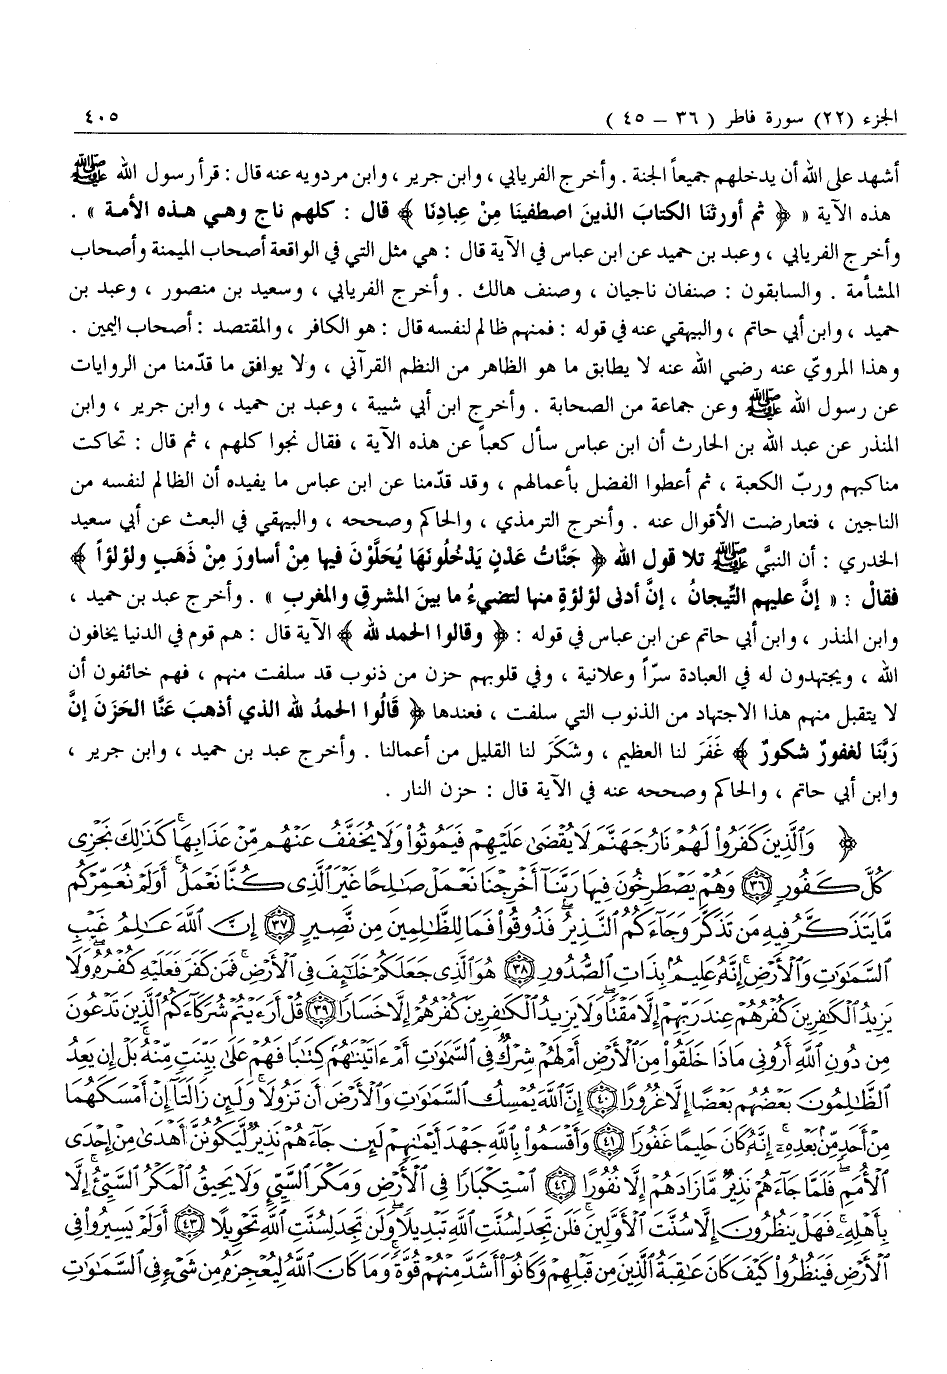 الجزء (٢٢) سورة فاطر ( ٣٦ – ٤٥ ) ٤٠٥
أشهد على الله أن يدخلهم جميعاً الجنة . وأخرج الفريابي ، وابن جرير ، وابن مردويه عنه قال : قرأ رسول الله ﷺ
هذه الآية « ﴿ ثم أورثنا الكتابَ الذينَ اصطفينَا مِنْ عِبادِنَا ﴾ قال : كلهم ناج وهي هذه الأمة » .
وأخرج الفريابي ، وعبد بن حميد عن ابن عباس في الآية قال : هي مثل التي في الواقعة أصحاب الميمنة وأصحاب
المشأمة . والسابقون : صنفان ناجيان ، وصنف هالك . وأخرج الفريابي ، وسعيد بن منصور ، وعبد بن
حميد ، وابن أبي حاتم ، والبيهقي عنه في قوله : فمنهم ظالم لنفسه قال : هو الكافر ، والمقتصد : أصحاب اليمين .
وهذا المرويّ عنه رضي الله عنه لا يطابق ما هو الظاهر من النظم القرآني ، ولا يوافق ما قدّمنا من الروايات
عن رسول الله ﷺ وعن جماعة من الصحابة . وأخرج ابن أبي شيبة ، وعبد بن حميد ، وابن جرير ، وابن
المنذر عن عبد الله بن الحارث أن ابن عباس سأل كعباً عن هذه الآية ، فقال نجوا كلهم ، ثم قال : تحاكت
مناكبهم وربّ الكعبة ، ثم أعطوا الفضل بأعمالهم ، وقد قدّمنا عن ابن عباس ما يفيده أن الظالم لنفسه من
الناجين ، فتعارضت الأقوال عنه . وأخرج الترمذي ، والحاكم وصححه ، والبيهقي في البعث عن أبي سعيد
الخدري : أن النبيَّ ﷺ تلا قول الله ﴿ جَنَّاتُ عَدْنٍ يَدْخُلُونَهَا يُحَلَّوْنَ فيها مِنْ أساورَ مِنْ ذَهَبٍ ولؤلؤاً ﴾
فقالْ : « إنَّ عليهم التِّيجانُ ، إنَّ أدنى لؤلؤةٍ منها لتضيءُ ما بينَ المشرقِ والمغربِ » . وأخرج عبد بن حميد ،
وابن المنذر ، وابن أبي حاتم عن ابن عباس في قوله : ﴿ وقالوا الحمد لله ﴾ الآية قال : هم قوم في الدنيا يخافون
الله ، ويجتهدون له في العبادة سرّاً وعلانية ، وفي قلوبهم حزن من ذنوب قد سلفت منهم ، فهم خائفون أن
لا يتقبل منهم هذا الاجتهاد من الذنوب التي سلفت ، فعندها ﴿ قَالُوا الحمدُ لله الذي أذهبَ عَنَّا الحَزَنَ إنَّ
رَبَّنَا لغفورٌ شكورٌ ﴾ غَفَرَ لنا العظيم ، وشَكَرَ لنا القليل من أعمالنا . وأخرج عبد بن حميد ، وابن جرير ،
وابن أبي حاتم ، والحاكم وصححه عنه في الآية قال : حزن النار .
﴿ وَٱلَّذِينَ كَفَرُوا۟ لَهُمْ نَارُ جَهَنَّمَ لَا يُقْضَىٰ عَلَيْهِمْ فَيَمُوتُوا۟ وَلَا يُخَفَّفُ عَنْهُم مِّنْ عَذَابِهَا ۚ كَذَٰلِكَ نَجْزِى
كُلَّ كَفُورٍ ﴿٣٦﴾ وَهُمْ يَصْطَرِخُونَ فِيهَا رَبَّنَآ أَخْرِجْنَا نَعْمَلْ صَٰلِحًا غَيْرَ ٱلَّذِى كُنَّا نَعْمَلُ ۚ أَوَلَمْ نُعَمِّرْكُم
مَّا يَتَذَكَّرُ فِيهِ مَن تَذَكَّرَ وَجَآءَكُمُ ٱلنَّذِيرُ ۖ فَذُوقُوا۟ فَمَا لِلظَّٰلِمِينَ مِن نَّصِيرٍ ﴿٣٧﴾ إِنَّ ٱللَّهَ عَٰلِمُ غَيْبِ
ٱلسَّمَٰوَٰتِ وَٱلْأَرْضِ ۚ إِنَّهُۥ عَلِيمٌۢ بِذَاتِ ٱلصُّدُورِ ﴿٣٨﴾ هُوَ ٱلَّذِى جَعَلَكُمْ خَلَٰٓئِفَ فِى ٱلْأَرْضِ ۚ فَمَن كَفَرَ فَعَلَيْهِ كُفْرُهُۥ ۖ وَلَا
يَزِيدُ ٱلْكَٰفِرِينَ كُفْرُهُمْ عِندَ رَبِّهِمْ إِلَّا مَقْتًا ۖ وَلَا يَزِيدُ ٱلْكَٰفِرِينَ كُفْرُهُمْ إِلَّا خَسَارًا ﴿٣٩﴾ قُلْ أَرَءَيْتُمْ شُرَكَآءَكُمُ ٱلَّذِينَ تَدْعُونَ
مِن دُونِ ٱللَّهِ أَرُونِى مَاذَا خَلَقُوا۟ مِنَ ٱلْأَرْضِ أَمْ لَهُمْ شِرْكٌ فِى ٱلسَّمَٰوَٰتِ أَمْ ءَاتَيْنَٰهُمْ كِتَٰبًا فَهُمْ عَلَىٰ بَيِّنَتٍ مِّنْهُ ۚ بَلْ إِن يَعِدُ
ٱلظَّٰلِمُونَ بَعْضُهُم بَعْضًا إِلَّا غُرُورًا ﴿٤٠﴾ إِنَّ ٱللَّهَ يُمْسِكُ ٱلسَّمَٰوَٰتِ وَٱلْأَرْضَ أَن تَزُولَا ۚ وَلَئِن زَالَتَآ إِنْ أَمْسَكَهُمَا
مِنْ أَحَدٍ مِّنۢ بَعْدِهِۦٓ ۚ إِنَّهُۥ كَانَ حَلِيمًا غَفُورًا ﴿٤١﴾ وَأَقْسَمُوا۟ بِٱللَّهِ جَهْدَ أَيْمَٰنِهِمْ لَئِن جَآءَهُمْ نَذِيرٌ لَّيَكُونُنَّ أَهْدَىٰ مِنْ إِحْدَى
ٱلْأُمَمِ ۖ فَلَمَّا جَآءَهُمْ نَذِيرٌ مَّا زَادَهُمْ إِلَّا نُفُورًا ﴿٤٢﴾ ٱسْتِكْبَارًا فِى ٱلْأَرْضِ وَمَكْرَ ٱلسَّيِّئِ ۚ وَلَا يَحِيقُ ٱلْمَكْرُ ٱلسَّيِّئُ إِلَّا
بِأَهْلِهِۦ ۚ فَهَلْ يَنظُرُونَ إِلَّا سُنَّتَ ٱلْأَوَّلِينَ ۚ فَلَن تَجِدَ لِسُنَّتِ ٱللَّهِ تَبْدِيلًا ۖ وَلَن تَجِدَ لِسُنَّتِ ٱللَّهِ تَحْوِيلًا ﴿٤٣﴾ أَوَلَمْ يَسِيرُوا۟ فِى
ٱلْأَرْضِ فَيَنظُرُوا۟ كَيْفَ كَانَ عَٰقِبَةُ ٱلَّذِينَ مِن قَبْلِهِمْ وَكَانُوٓا۟ أَشَدَّ مِنْهُمْ قُوَّةً ۚ وَمَا كَانَ ٱللَّهُ لِيُعْجِزَهُۥ مِن شَىْءٍ فِى ٱلسَّمَٰوَٰتِ